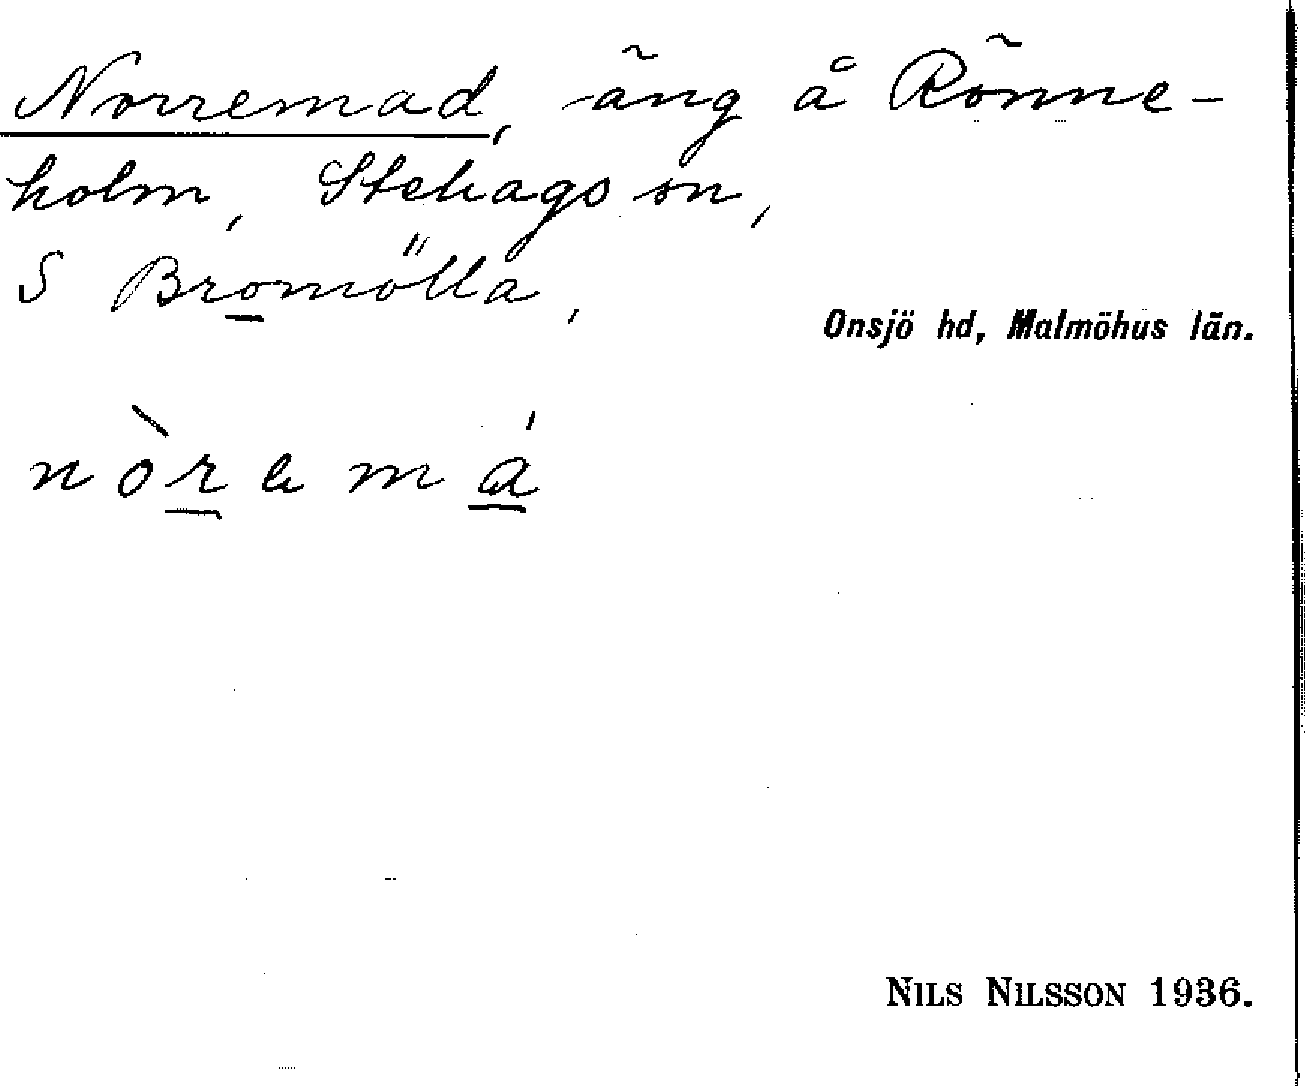 Norremad, äng å Rönne-
holm, Stehags sn,
S Bromölla,
Onsjö hd, Malmöhus län.
nòremá
NILS NILSSON 1936.